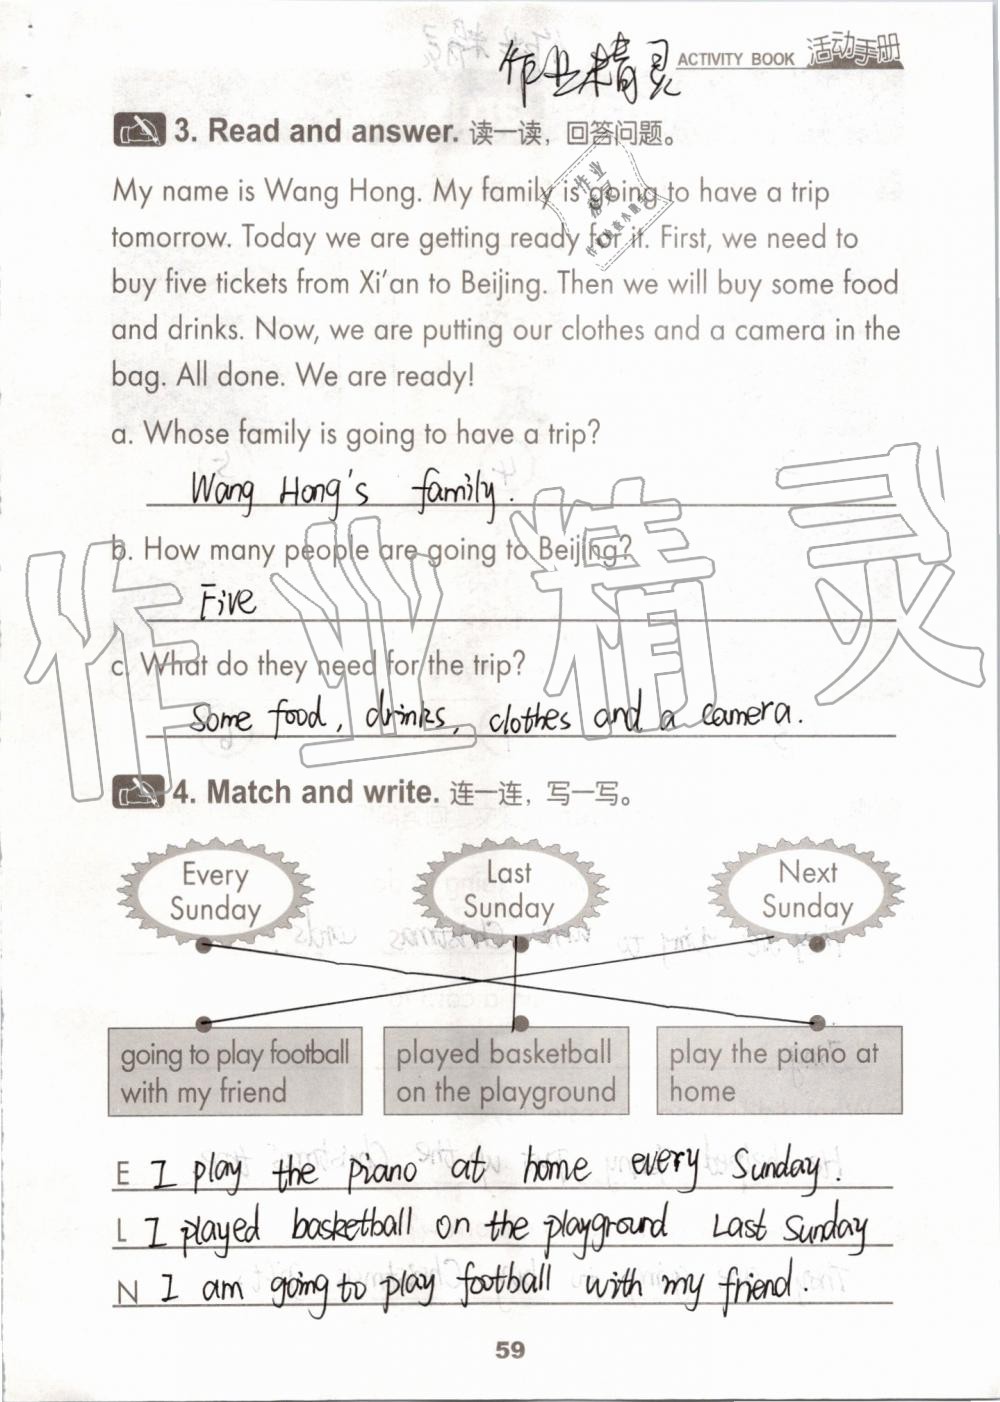 作业精灵
ACTIVITY BOOK 活动手册
3. Read and answer. 读一读，回答问题。
My name is Wang Hong. My family is going to have a trip
tomorrow. Today we are getting ready for it. First, we need to
buy five tickets from Xi'an to Beijing. Then we will buy some food
and drinks. Now, we are putting our clothes and a camera in the
bag. All done. We are ready!
a. Whose family is going to have a trip?
Wang Hong's family.
b. How many people are going to Beijing?
Five
c. What do they need for the trip?
Some food, drinks, clothes and a camera.
作业精灵
4. Match and write. 连一连，写一写。
Every
Sunday
Last
Sunday
Next
Sunday
going to play football
with my friend
played basketball
on the playground
play the piano at
home
E I play the piano at home every Sunday.
L I played basketball on the playground Last Sunday
N I am going to play football with my friend.
59